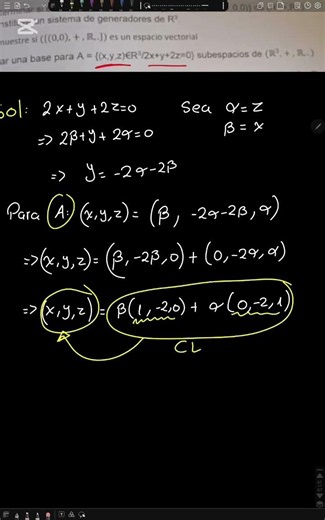 un sistema de generadores de R³
muestre si ({(0,0), + , ℝ,.}) es un espacio vectorial
ar una base para A = {(x,y,z)∈R³/2x+y+2z=0} subespacios de (ℝ³, + , ℝ,.)
Sol: 2x+y+2z=0 Sea α=z
=> 2β+y+2α=0 β=x
=> y=-2α-2β
Para A: (x,y,z)=(β, -2α-2β, α)
=>(x,y,z)=(β,-2β,0)+(0,-2α,α)
=> (x,y,z)=β(1,-2,0)+α(0,-2,1)
CL